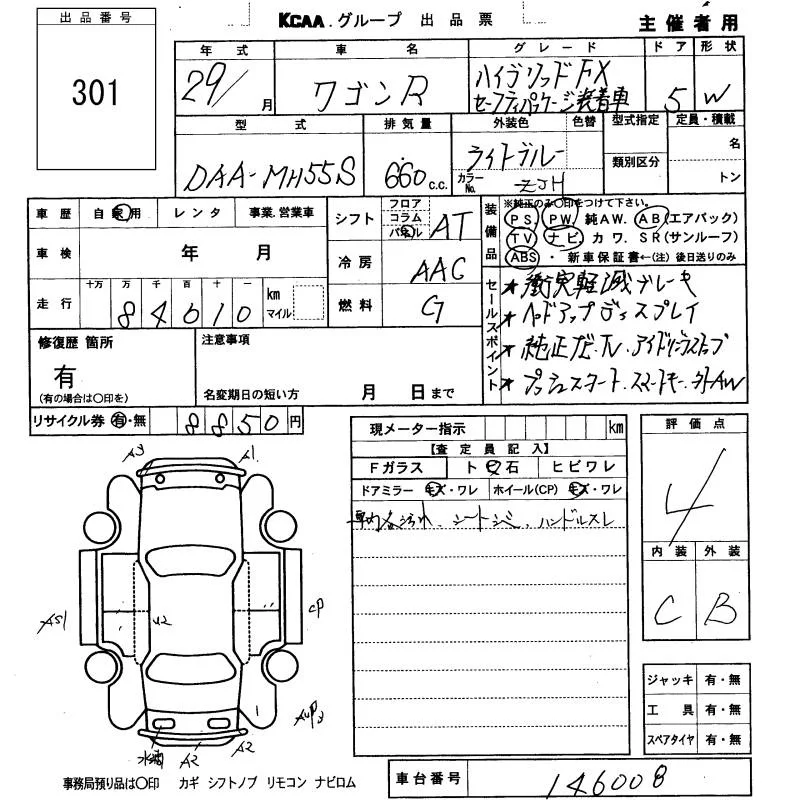 出品番号
301
KCAA.グループ 出品票
主催者用
年式 車名 グレード ドア 形状
29/ 月 ワゴンR ハイブリッドFX 5 W
セーフティパッケージ装着車
型式 排気量 外装色 色替 型式指定 定員・積載
DAA-MH55S 660 c.c. ライトブルー 名
カラーNo. ZJH 類別区分 トン
車歴 自家用 レンタ 事業.営業車
車検 年 月
走行 十万 万 千 百 十 一 km マイル
84610
シフト フロア コラム パネル AT
冷房 AAC
燃料 G
装備品 ※純正のみ○印をつけて下さい。
PS PW 純AW. AB(エアバック)
TV ナビ カワ. SR(サンルーフ)
ABS ・ 新車保証書←(注) 後日送りのみ
セールスポイント
★衝突軽減ブレーキ
★ヘッドアップディスプレイ
★純正ナビ.TV.アイドリングストップ
★プッシュスタート.スマートキー.社外AW
修復歴 箇所
有
(有の場合は○印を)
注意事項
名変期日の短い方 月 日まで
リサイクル券 有・無 8850円
現メーター指示 km
【査定員記入】
Fガラス ト ビ 石 ヒビワレ
ドアミラー キズ・ワレ ホイール(CP) キズ・ワレ
車内各汚れ、シートシミ、ハンドルスレ
評価点
4
内装 外装
C B
A3 A1
AS1 U2 CP
AUP3
A2 A2
ジャッキ 有・無
工具 有・無
スペアタイヤ 有・無
事務局預り品は○印 カギ シフトノブ リモコン ナビロム
車台番号 146008